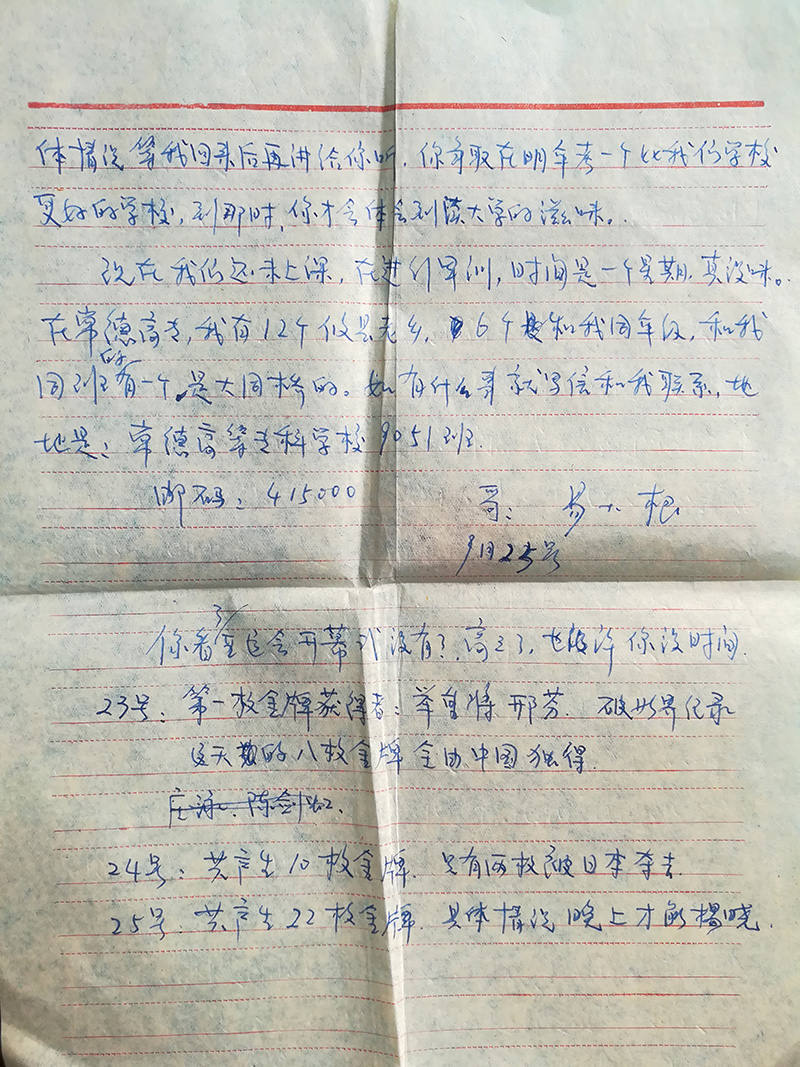 体情况等我回来后再讲给你听，你争取在明年考一个比我们学校
更好的学校，到那时，你才会体会到读大学的滋味。
现在我们还未上课，在进行军训，时间是一个星期，真没味。
在常德高专，我有12个攸县老乡，6个是和我同年级，和我
同班的有一个，是大同桥的。如有什么事就写信和我联系，地
地是：常德高等专科学校9051班.
邮码：415000
哥：易小根
9月25号
你看了亚运会开幕式没有？高三了，也许你没时间.
23号：第一枚金牌获得者：举重将邢芬. 破世界纪录
这天的八枚金牌全由中国独得.
庄泳、陈剑虹、
24号：共产生10枚金牌. 只有两枚被日本夺去.
25号.共产生22枚金牌. 具体情况晚上才能揭晓.